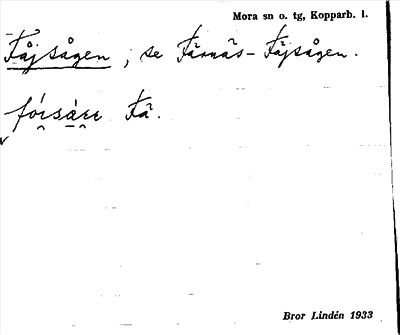 Mora sn o. tg, Kopparb. l.
Fåjsågen, se Färnäs-Fåjsågen.
fósáre Fä.
Bror Lindén 1933